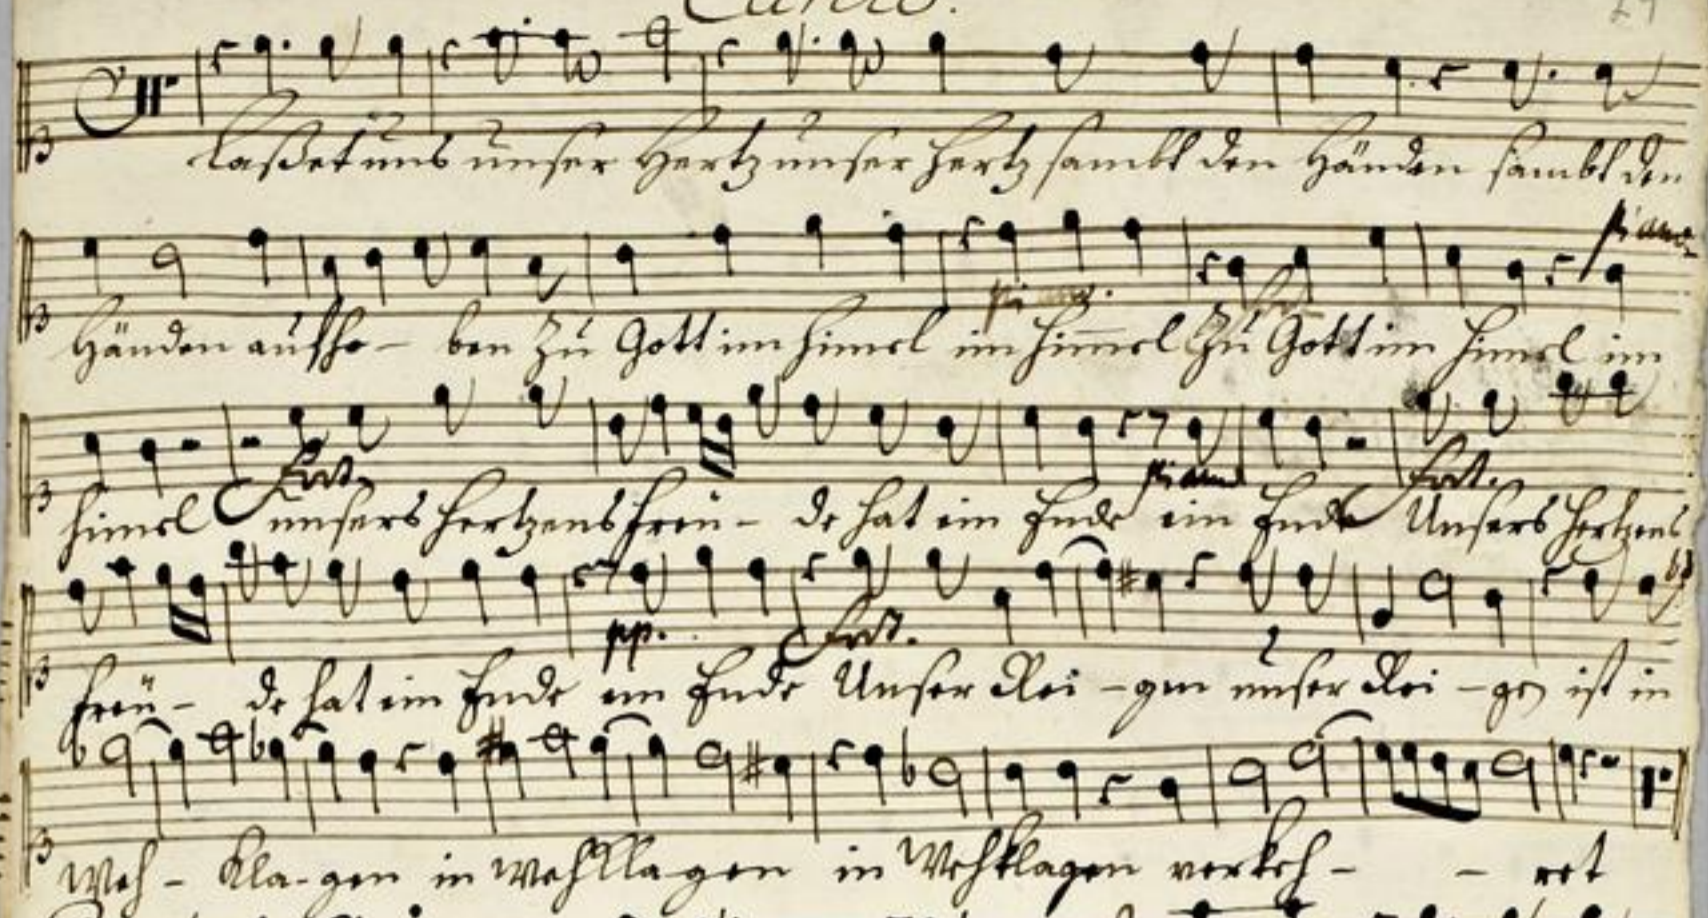 Canto.
Laßet uns unser Hertz unser hertz sambt den Händen sambt den
piano
piano.
Händen aufhe- ben zu Gott im himel im him̄el zu Gott im himel im
Fort. piano Fort.
himel unsers hertzens freü- de hat ein Ende ein Ende Unsers hertzens
pp. Fort.
freü- de hat ein Ende ein Ende Unser Rei-gen unser Rei-gen ist in
Weh- kla-gen in wehklagen in Wehklagen verkeh- - ret